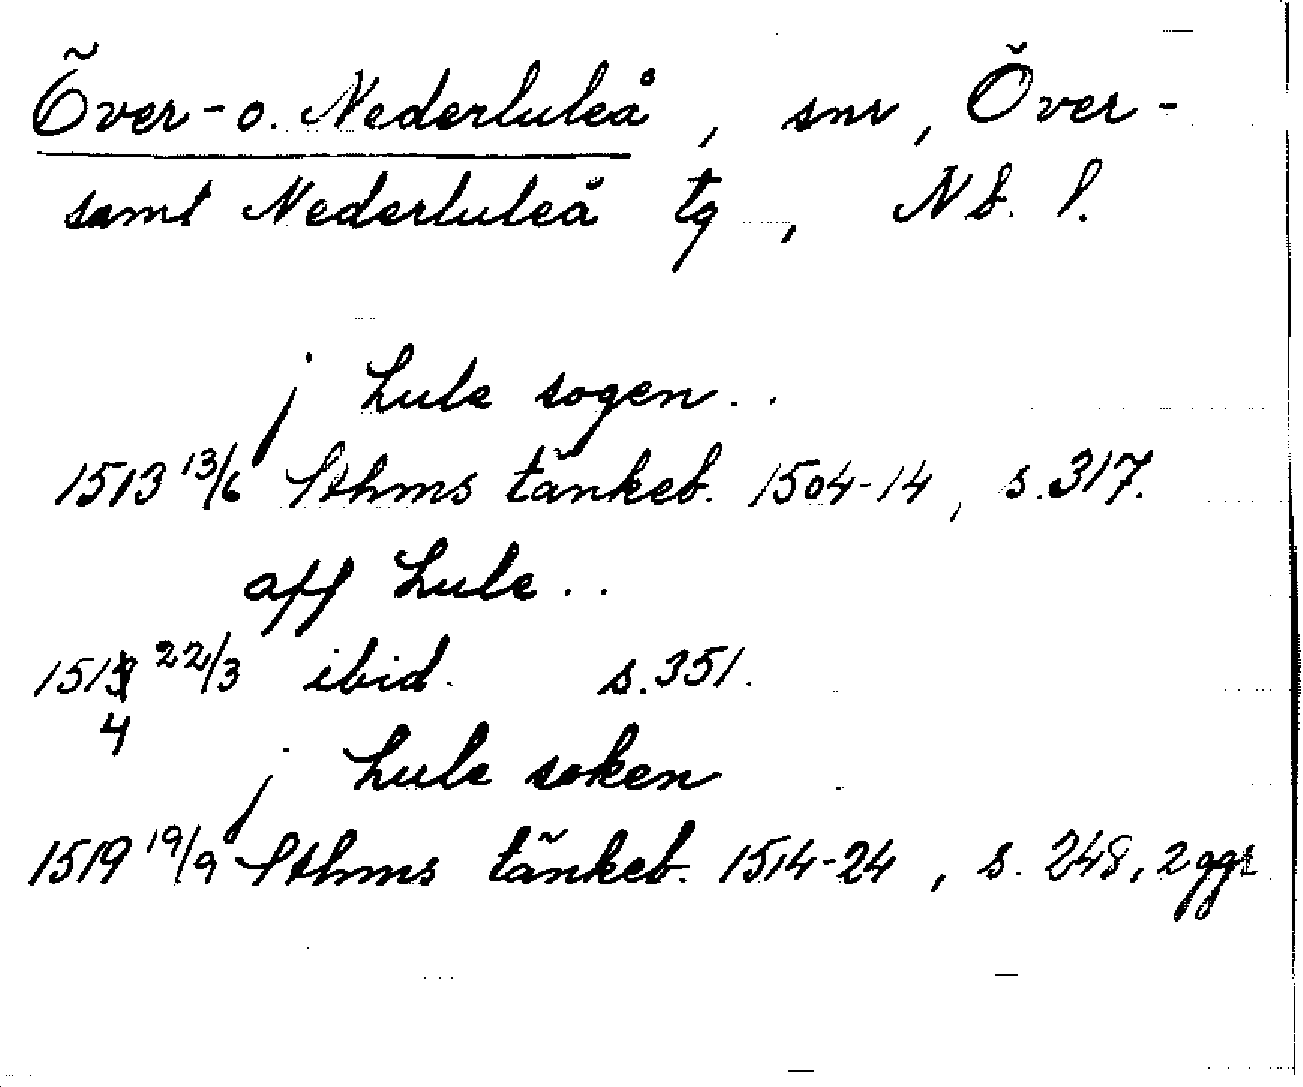 Över- o. Nederluleå, snr, Över-
samt Nederluleå tg, Nb. l.
j Lule sogen..
1513 13/6 Sthms tänkeb. 1504-14, s. 317.
aff Lule..
1513 22/3 ibid. s. 351.
4
j Lule soken
1519 19/9 Sthms tänkeb. 1514-24, s. 248, 2 ggr